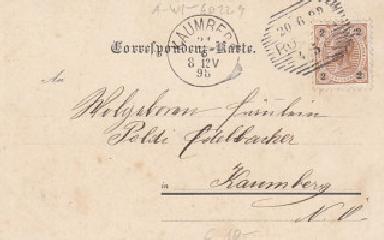 A-W1-60229
KAUMBERG
21
6
8 12V
98
20.6.98
2 2
2 2
Correspondenz-Karte.
An
Wolgeboren Fräulein
Poldi Edelbacher
in Kaumberg
N. Ö.